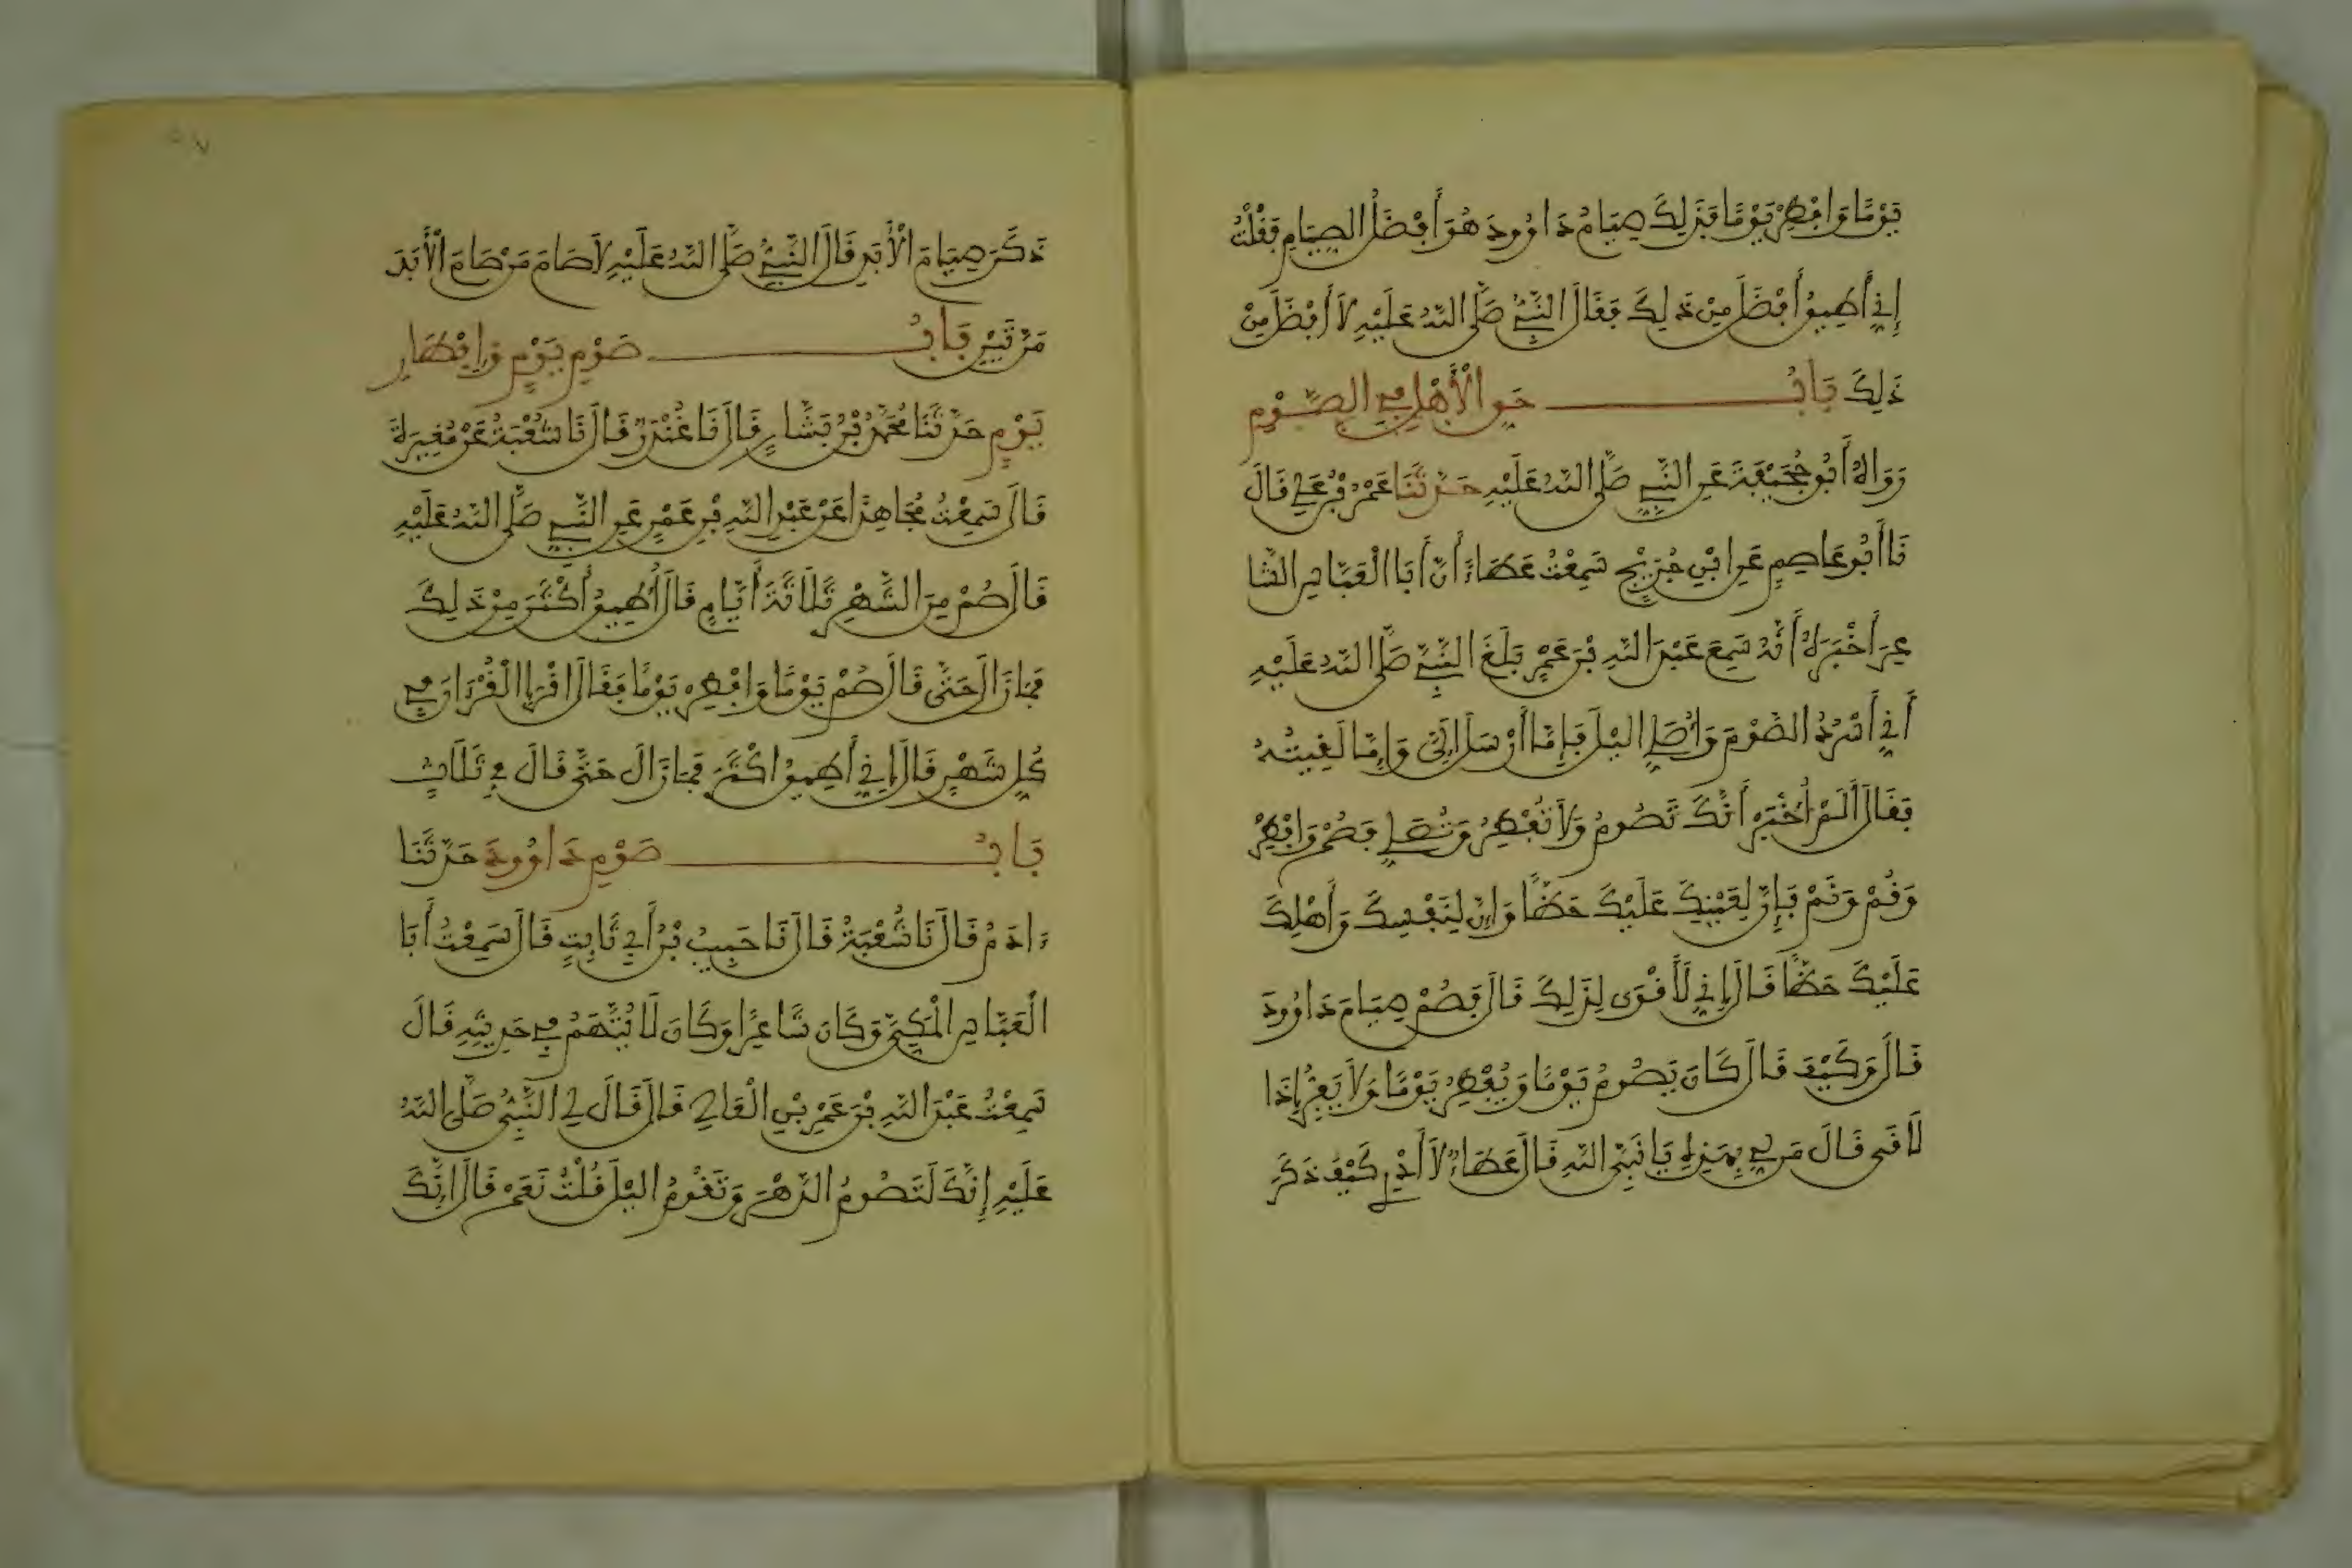 يَوْمًا وَافْطِرْ يَوْمًا فَذَلِكَ صِيَامُ دَاوُودَ هُوَ أَفْضَلُ الصِّيَامِ فَقُلْتُ
إِنِّي أُطِيقُ أَفْضَلَ مِنْ ذَلِكَ فَقَالَ النَّبِيُّ صَلَّى اللَّهُ عَلَيْهِ لَا أَفْضَلَ مِنْ
ذَلِكَ بَابُ حَقِّ الْأَهْلِ فِي الصَّوْمِ
رَوَاهُ أَبُو جُحَيْفَةَ عَنِ النَّبِيِّ صَلَّى اللَّهُ عَلَيْهِ حَدَّثَنَا عَمْرُو بْنُ عَلِيٍّ قَالَ
نَا أَبُو عَاصِمٍ عَنِ ابْنِ جُرَيْجٍ سَمِعْتُ عَطَاءً أَنَّ أَبَا الْعَبَّاسِ الشَّا
عِرَ أَخْبَرَهُ أَنَّهُ سَمِعَ عَبْدَ اللَّهِ بْنَ عَمْرٍ بَلَغَ النَّبِيَّ صَلَّى اللَّهُ عَلَيْهِ
أَنِّي أَسْرُدُ الصَّوْمَ وَأُصَلِّي الَّيْلَ فَإِمَّا أَرْسَلَ إِلَيَّ وَإِمَّا لَقِيتُهُ
فَقَالَ أَلَمْ أُخْبَرْ أَنَّكَ تَصُومُ وَلَا تُفْطِرُ وَتُصَلِّي فَصُمْ وَافْطِرْ
وَقُمْ وَنَمْ فَإِنَّ لِعَيْنِكَ عَلَيْكَ حَظًّا وَإِنَّ لِنَفْسِكَ وَأَهْلِكَ
عَلَيْكَ حَظًّا قَالَ إِنِّي لَأَقْوَى لِذَلِكَ قَالَ فَصُمْ صِيَامَ دَاوُودَ
قَالَ وَكَيْفَ قَالَ كَانَ يَصُومُ يَوْمًا وَيُفْطِرُ يَوْمًا وَلَا يَفِرُّ إِذَا
لَاقَى قَالَ مَنْ لِي بِهَذِهِ يَا نَبِيَّ اللَّهِ قَالَ عَطَاءٌ لَا أَدْرِي كَيْفَ ذَكَرَ
ذَكَرَ صِيَامَ الْأَبَدِ قَالَ النَّبِيُّ صَلَّى اللَّهُ عَلَيْهِ لَا صَامَ مَنْ صَامَ الْأَبَدَ
مَرَّتَيْنِ بَابُ صَوْمِ يَوْمٍ وَإِفْطَارِ
يَوْمٍ حَدَّثَنَا مُحَمَّدُ بْنُ بَشَّارٍ قَالَ نَا غُنْدَرٌ قَالَ نَا شُعْبَةُ عَنْ مُغِيرَةَ
قَالَ سَمِعْتُ مُجَاهِدًا عَنْ عَبْدِ اللَّهِ بْنِ عَمْرٍ عَنِ النَّبِيِّ صَلَّى اللَّهُ عَلَيْهِ
قَالَ صُمْ مِنَ الشَّهْرِ ثَلَاثَةَ أَيَّامٍ قَالَ أُطِيقُ أَكْثَرَ مِنْ ذَلِكَ
فَمَا زَالَ حَتَّى قَالَ صُمْ يَوْمًا وَافْطِرْ يَوْمًا فَقَالَ اقْرَإِ الْقُرْءَانَ فِي
كُلِّ شَهْرٍ قَالَ إِنِّي أُطِيقُ أَكْثَرَ فَمَا زَالَ حَتَّى قَالَ فِي ثَلَاثٍ
بَابُ صَوْمِ دَاوُودَ حَدَّثَنَا
ءَادَمُ قَالَ نَا شُعْبَةُ قَالَ نَا حَبِيبُ بْنُ أَبِي ثَابِتٍ قَالَ سَمِعْتُ أَبَا
الْعَبَّاسِ الْمَكِّيَّ وَكَانَ شَاعِرًا وَكَانَ لَا يُتَّهَمُ فِي حَدِيثِهِ قَالَ
سَمِعْتُ عَبْدَ اللَّهِ بْنَ عَمْرِ بْنِ الْعَاصِي قَالَ قَالَ لِي النَّبِيُّ صَلَّى اللَّهُ
عَلَيْهِ إِنَّكَ لَتَصُومُ الدَّهْرَ وَتَقُومُ الَّيْلَ قُلْتُ نَعَمْ قَالَ إِنَّكَ